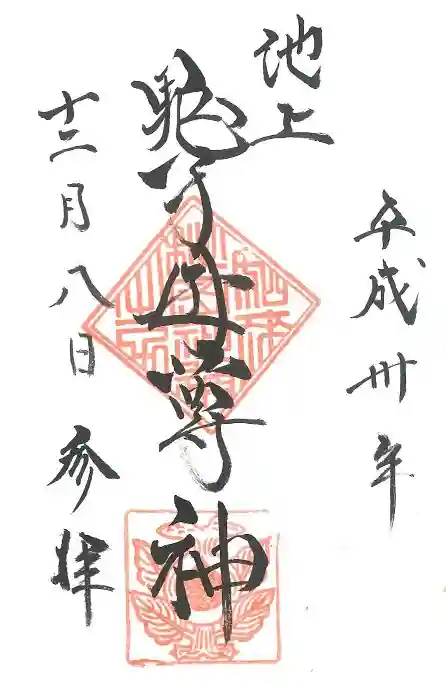 平成卅年
池上
鬼子母尊神
十二月八日
参拝